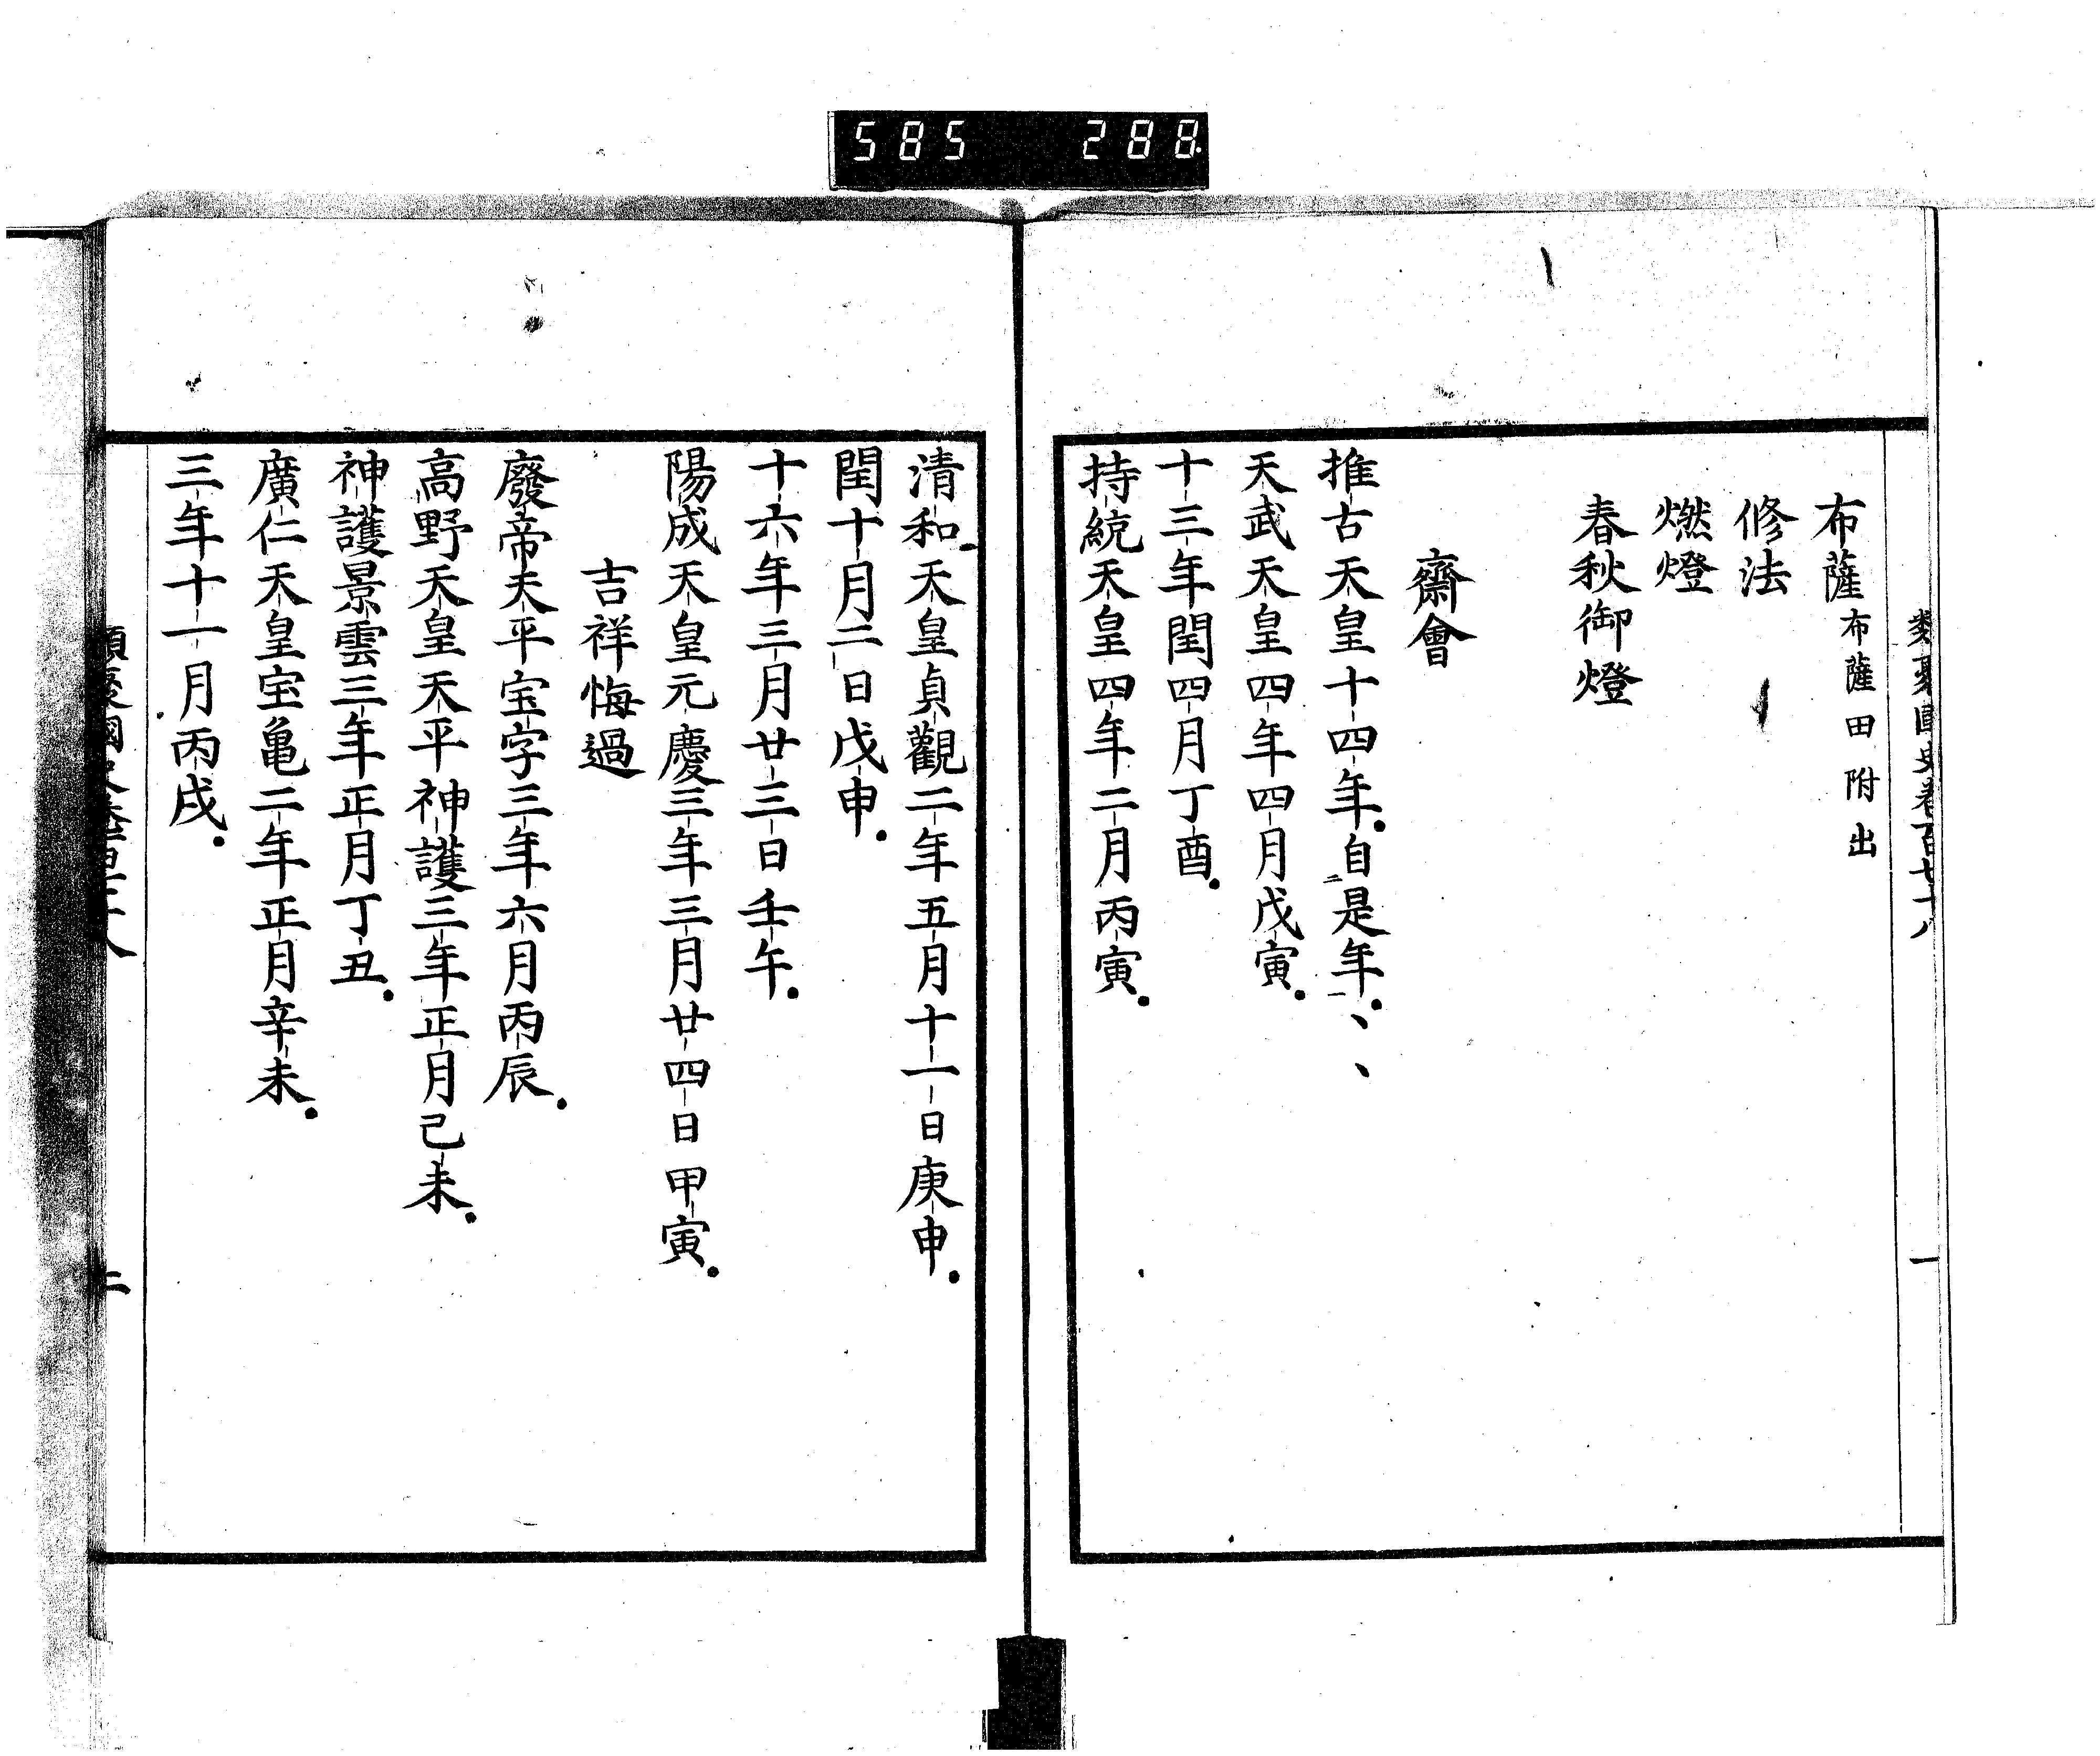 585 288
類聚國史卷百七十八 一
布薩 布薩田附出
修法
燃燈
春秋御燈
齋會
推古天皇十四年自是年、、
天武天皇四年四月戊寅
十三年閏四月丁酉
持統天皇四年二月丙寅
清和天皇貞觀二年五月十一日庚申
閏十月二日戊申
十六年三月廿三日壬午
陽成天皇元慶三年三月廿四日甲寅
吉祥悔過
廢帝天平宝字三年六月丙辰
高野天皇天平神護三年正月己未
神護景雲三年正月丁丑
廣仁天皇宝亀二年正月辛未
三年十一月丙戌
類聚國史卷百七十八 二